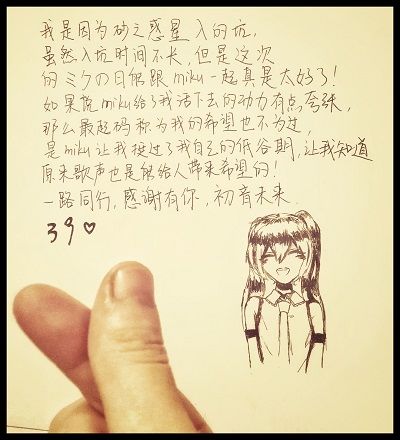 我是因为砂之惑星入的坑,
虽然入坑时间不长,但是这次
的ミクの日能跟miku一起真是太好了!
如果说miku给了我活下去的动力有点夸张,
那么最起码称为我的希望也不为过,
是miku让我挨过了我自己的低谷期,让我知道
原来歌声也是能给人带来希望的!
一路同行,感谢有你,初音未来.
39♡